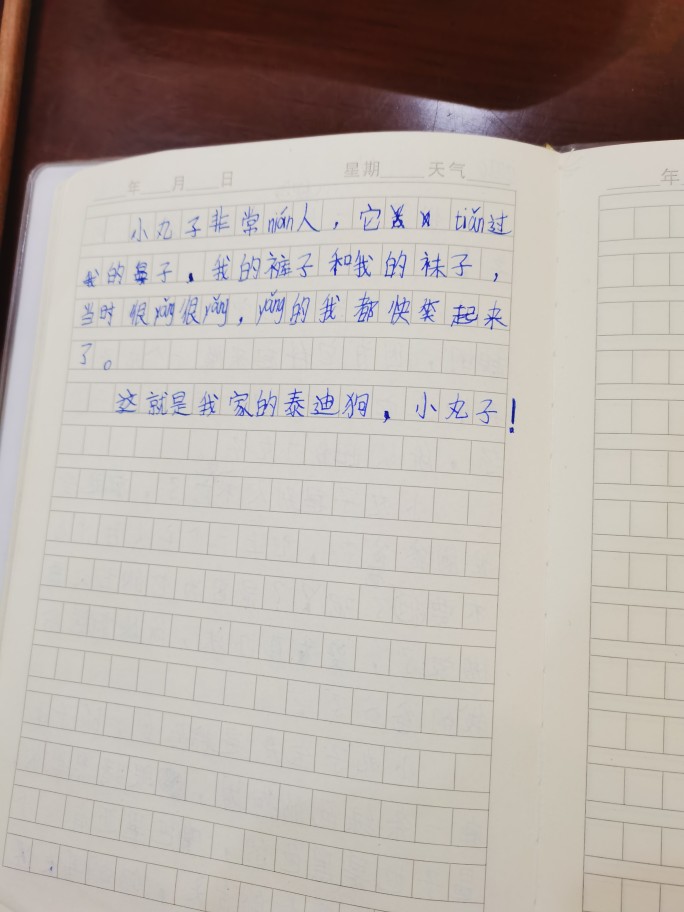 年 月 日 星期 天气
小丸子非常nián人，它 tiǎn过
我的鼻子、我的裤子和我的袜子，
当时很yǎng很yǎng，yǎng的我都快笑起来
了。
这就是我家的泰迪狗，小丸子！
年